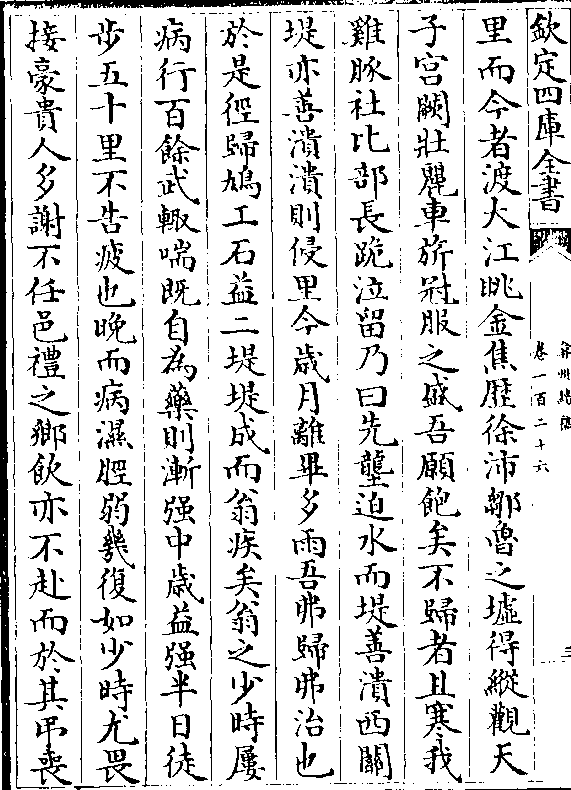 欽定四庫全書
弇州續稿
卷一百二十六
三
里而今者渡大江眺金焦歴徐沛鄒魯之墟得縱觀天
子宫闕壯麗車旂冠服之盛吾願飽矣不歸者且寒我
雞豚社比部長跪泣留乃曰先壟迫水而堤善潰西關
堤亦善潰潰則侵里今歳月離畢多雨吾弗歸弗治也
於是徑歸鳩工石益二堤堤成而翁疾矣翁之少時屢
病行百餘武輙喘既自為藥則漸强中歳益强半日徒
步五十里不告疲也晚而病濕脛弱㡬復如少時尤畏
接豪貴人多謝不任邑禮之鄉飲亦不赴而於其弔喪